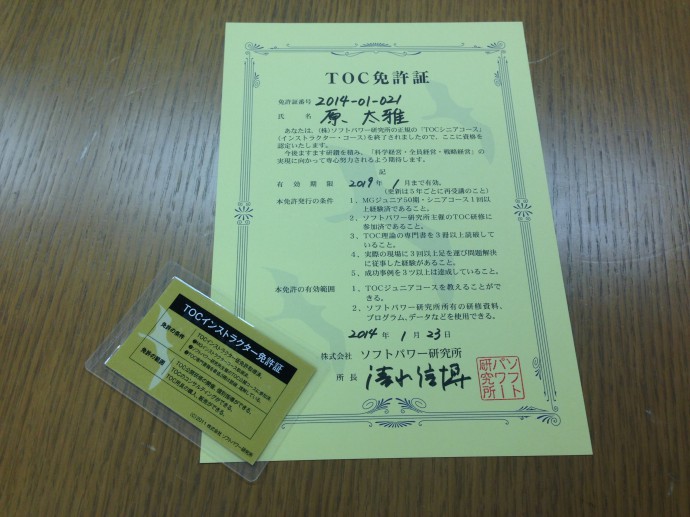 TOC免許証
免許証番号 2014-01-021
氏名 原 太雅
あなたは、(株)ソフトパワー研究所の正規の「TOCシニアコース」
(インストラクター・コース)を終了されましたので、ここに資格を
認定いたします。
今後ますます研鑽を積み、「科学経営・全員経営・戦略経営」の
実現に向かって専心努力されるよう期待します。
記
有効期限 2019年1月まで有効。
(更新は5年ごとに再受講のこと)
本免許発行の条件 1、MGジュニア50期・シニアコース1回以
上経験済であること。
2、ソフトパワー研究所主催のTOC研修に
参加済であること。
3、TOC理論の専門書を3冊以上読破して
いること。
4、実際の現場に3回以上足を運び問題解決
に従事した経験があること。
5、成功事例を3ツ以上は達成していること。
本免許の有効範囲 1、TOCジュニアコースを教えることがで
きる。
2、ソフトパワー研究所所有の研修資料、
プログラム、データなどを使用できる。
2014年1月23日
株式会社 ソフトパワー研究所
所長 清水信博
ソフト
パワー
研究所
TOCインストラクター免許証
免許の条件
免許の範囲